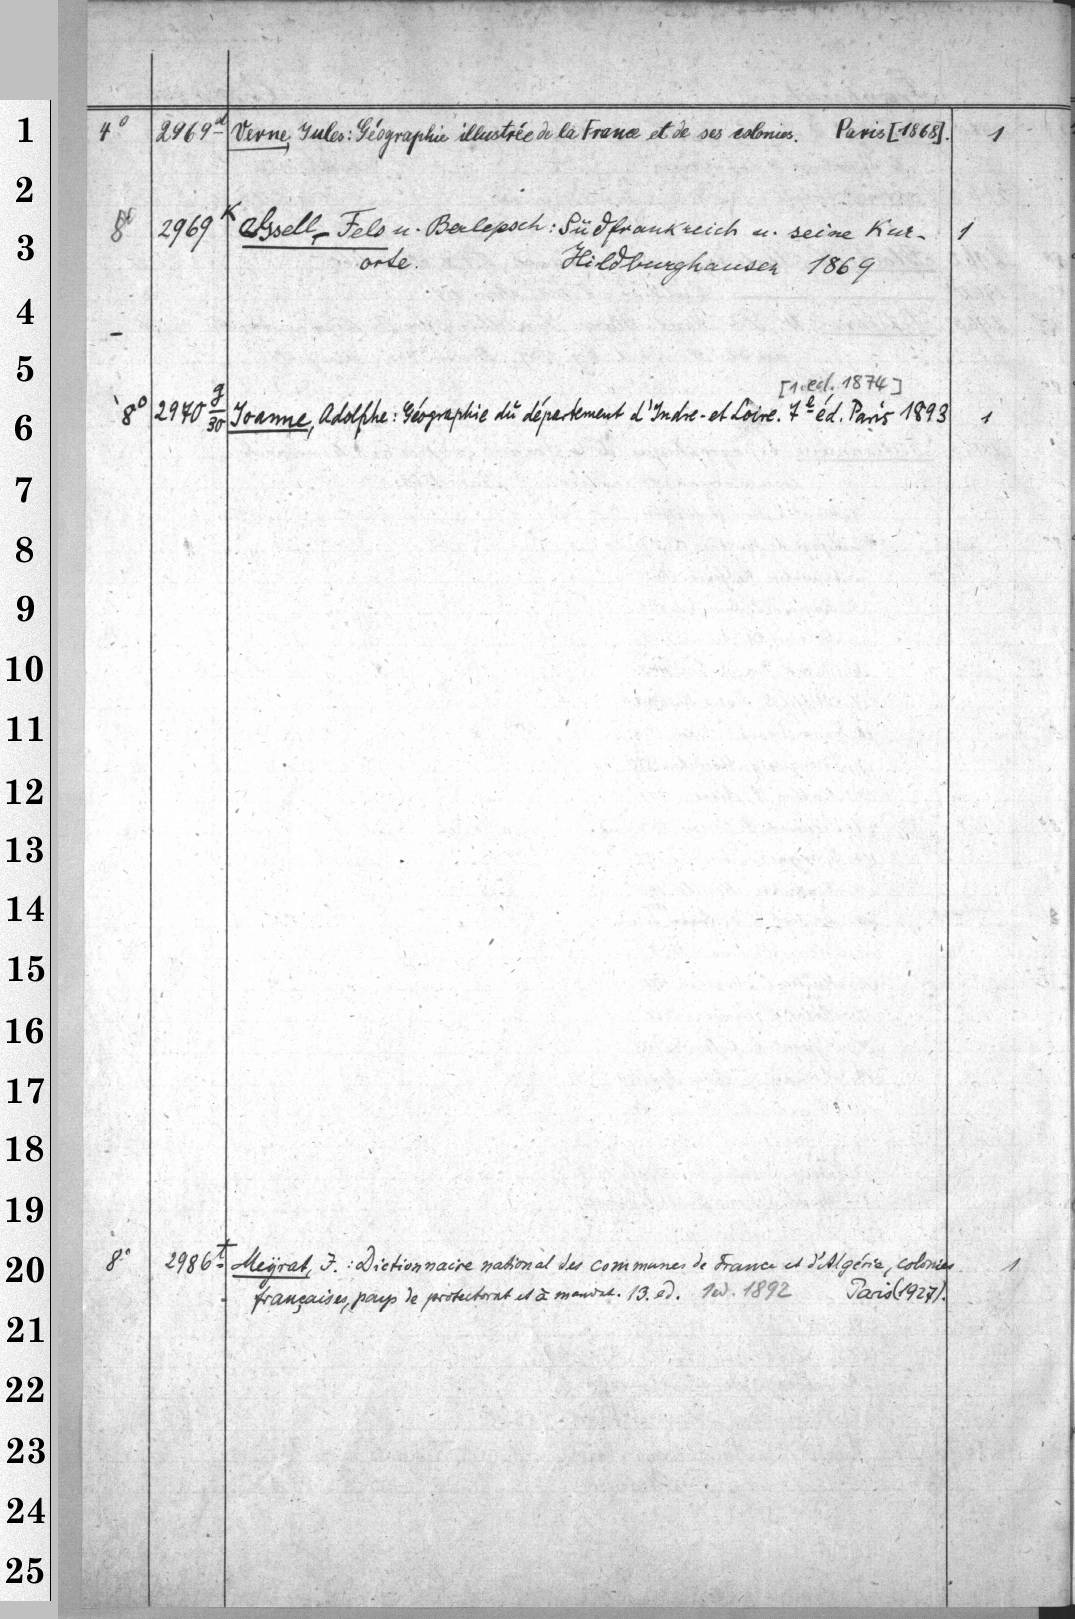 1
4° 2969d Verne, Jules: Géographie illustrée de la France et de ses colonies. Paris [1868]. 1
2
8° 2969 K Gsell-Fels u. Berlepsch: Südfrankreich u. seine Kur- 1
3
orte. Hildburghausen 1869
4
5
[1. ed. 1874]
6
8° 2970 g/30 Joanne, Adolphe: Géographie du département d'Indre-et Loire. 7e éd. Paris 1893 1
7
8
9
10
11
12
13
14
15
16
17
18
19
20
8° 2986t Meyrat, J.: Dictionnaire national des communes de France et d'Algérie, colonies 1
françaises, pays de protectorat et à mandat. 13. éd. 1 ed. 1892 Paris (1927).
21
22
23
24
25